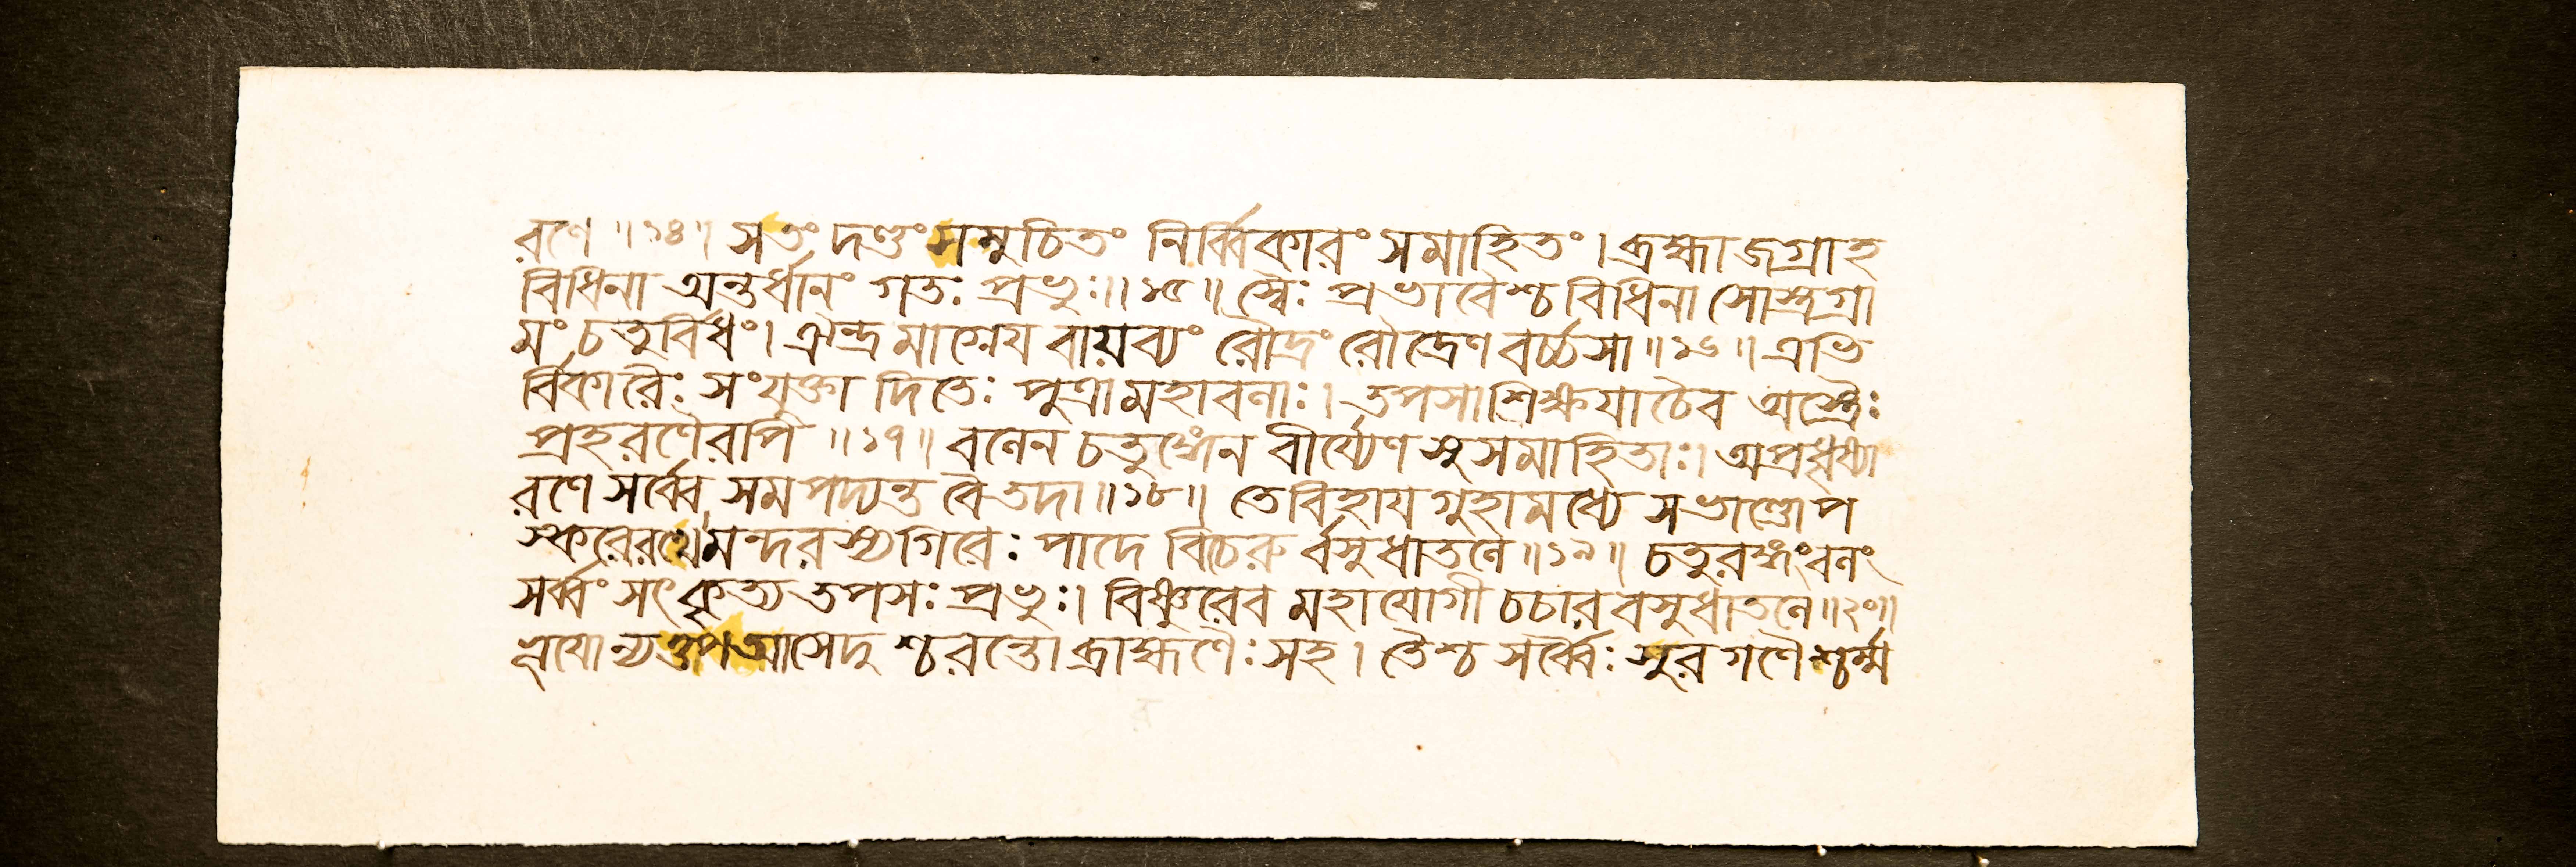 রণে ॥ ১৪ ॥ সতং দণ্ডং সমুচিতং নির্ব্বিকারং সমাহিতং । ব্রহ্মা জগ্রাহ
বিধিনা অন্তর্ধানং গতঃ প্রভুঃ ॥ ১৫ ॥ স্বৈঃ প্রভাবৈশ্চ বিধিনা সোস্ত্রগ্রা
মং চতুর্বিধং । ঐন্দ্রমাগ্নেয বায়ব্যং রৌদ্রং রৌদ্রেণ বর্চ্চসা ॥ ১৬ ॥ এভি
র্বিকারৈঃ সংযুক্তা দিতেঃ পুত্রা মহাবলাঃ । তপসা শিক্ষযা চৈব অস্ত্রৈঃ
প্রহরণৈরপি ॥ ১৭ ॥ বলেন চতুরঙ্গেন বীর্য্যেণ সুসমাহিতাঃ । অপ্রধৃষ্যা
রণে সর্ব্বে সমপদ্যন্ত বৈ তদা ॥ ১৮ ॥ তে বিহায গুহামধ্যে সভাণ্ডোপ
স্করে রথে । মন্দরস্য গিরেঃ পাদে বিচেরু র্বসুধাতলে ॥ ১৯ ॥ চতুরঙ্গং বলং
সর্ব্বং সংকৃত্য তপসঃ প্রভুঃ । বিষ্ণুরেব মহাযোগী চচার বসুধাতলে ॥ ২০ ॥
আসেদু শ্চরন্তো ব্রাহ্মণৈঃ সহ । তৈশ্চ সর্ব্বৈঃ সুরগণৈ শ্চর্ম্ম